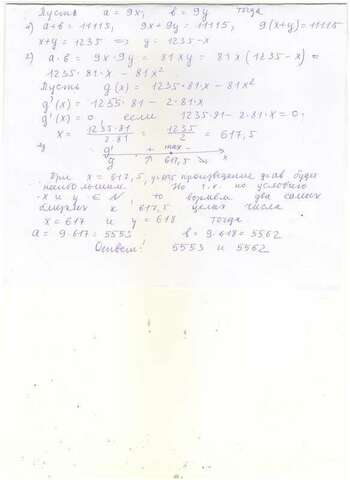 Пусть a = 9x; b = 9y тогда
1) a+b = 11115, 9x + 9y = 11115, 9(x+y) = 11115
x+y = 1235 => y = 1235-x
2) a·b = 9x·9y = 81xy = 81x(1235-x) =
1235·81·x - 81x²
Пусть g(x) = 1235·81·x - 81x²
g'(x) = 1235·81 - 2·81·x
g'(x) = 0 если 1235·81 - 2·81·x = 0
x = 1235·81 / 2·81 = 1235 / 2 = 617,5
g' + max -
g ↑ 617,5 ↘ x
При x = 617,5 произведение ab будет
наибольшим. Но т.к. по условию
x и y ∈ N, то возьмём два самых
близких к 617,5 целых числа
x = 617 и y = 618 тогда
a = 9·617 = 5553 b = 9·618 = 5562
Ответ: 5553 и 5562